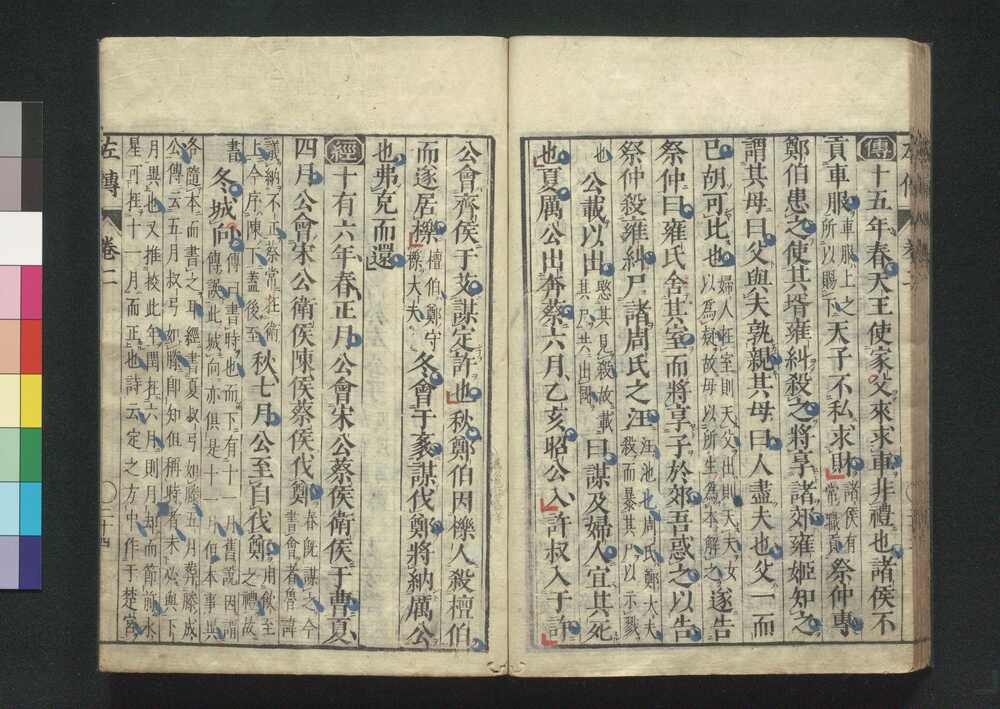 傳十五年春天王使家父來求車非禮也諸侯不
貢車服車服上之所以賜下天子不私求財諸侯有常職貢祭仲專
鄭伯患之使其壻雍糾殺之將享諸郊雍姬知之
謂其母曰父與夫孰親其母曰人盡夫也父一而
已胡可比也婦人在室則天父出則天夫女以爲疑故母以所生爲本解之遂告
祭仲曰雍氏舍其室而將享子於郊吾惑之以告
祭仲殺雍糾尸諸周氏之汪汪池也周氏鄭大夫殺而暴其尸以示戮
也公載以出愍其見殺故載其尸共出國曰謀及婦人宜其死
也夏厲公出奔蔡六月乙亥昭公入許叔入于許
公會齊侯于艾謀定許也秋鄭伯因櫟人殺檀伯
而遂居櫟檀伯鄭守櫟大夫冬會于袲謀伐鄭將納厲公
也弗克而還
經十有六年春正月公會宋公蔡侯衛侯于曹夏
四月公會宋公衛侯陳侯蔡侯伐鄭春既謀之今書會者魯諱
議納不正蔡常在衛上今序陳下蓋後至秋七月公至自伐鄭用飲至之禮故
書冬城向傳曰書時也而下有十一月舊說因謂傳誤此城向亦俱是十一月但本事異
各隨本而書之耳經書夏叔弓如滕五月葬滕成
公傳云五月叔弓如滕即知但稱時者未必與下
月異也又推校此年閏在六月則月却而節前水
星可在十一月而正也詩云定之方中作于楚宮
左傳
卷二
二十四